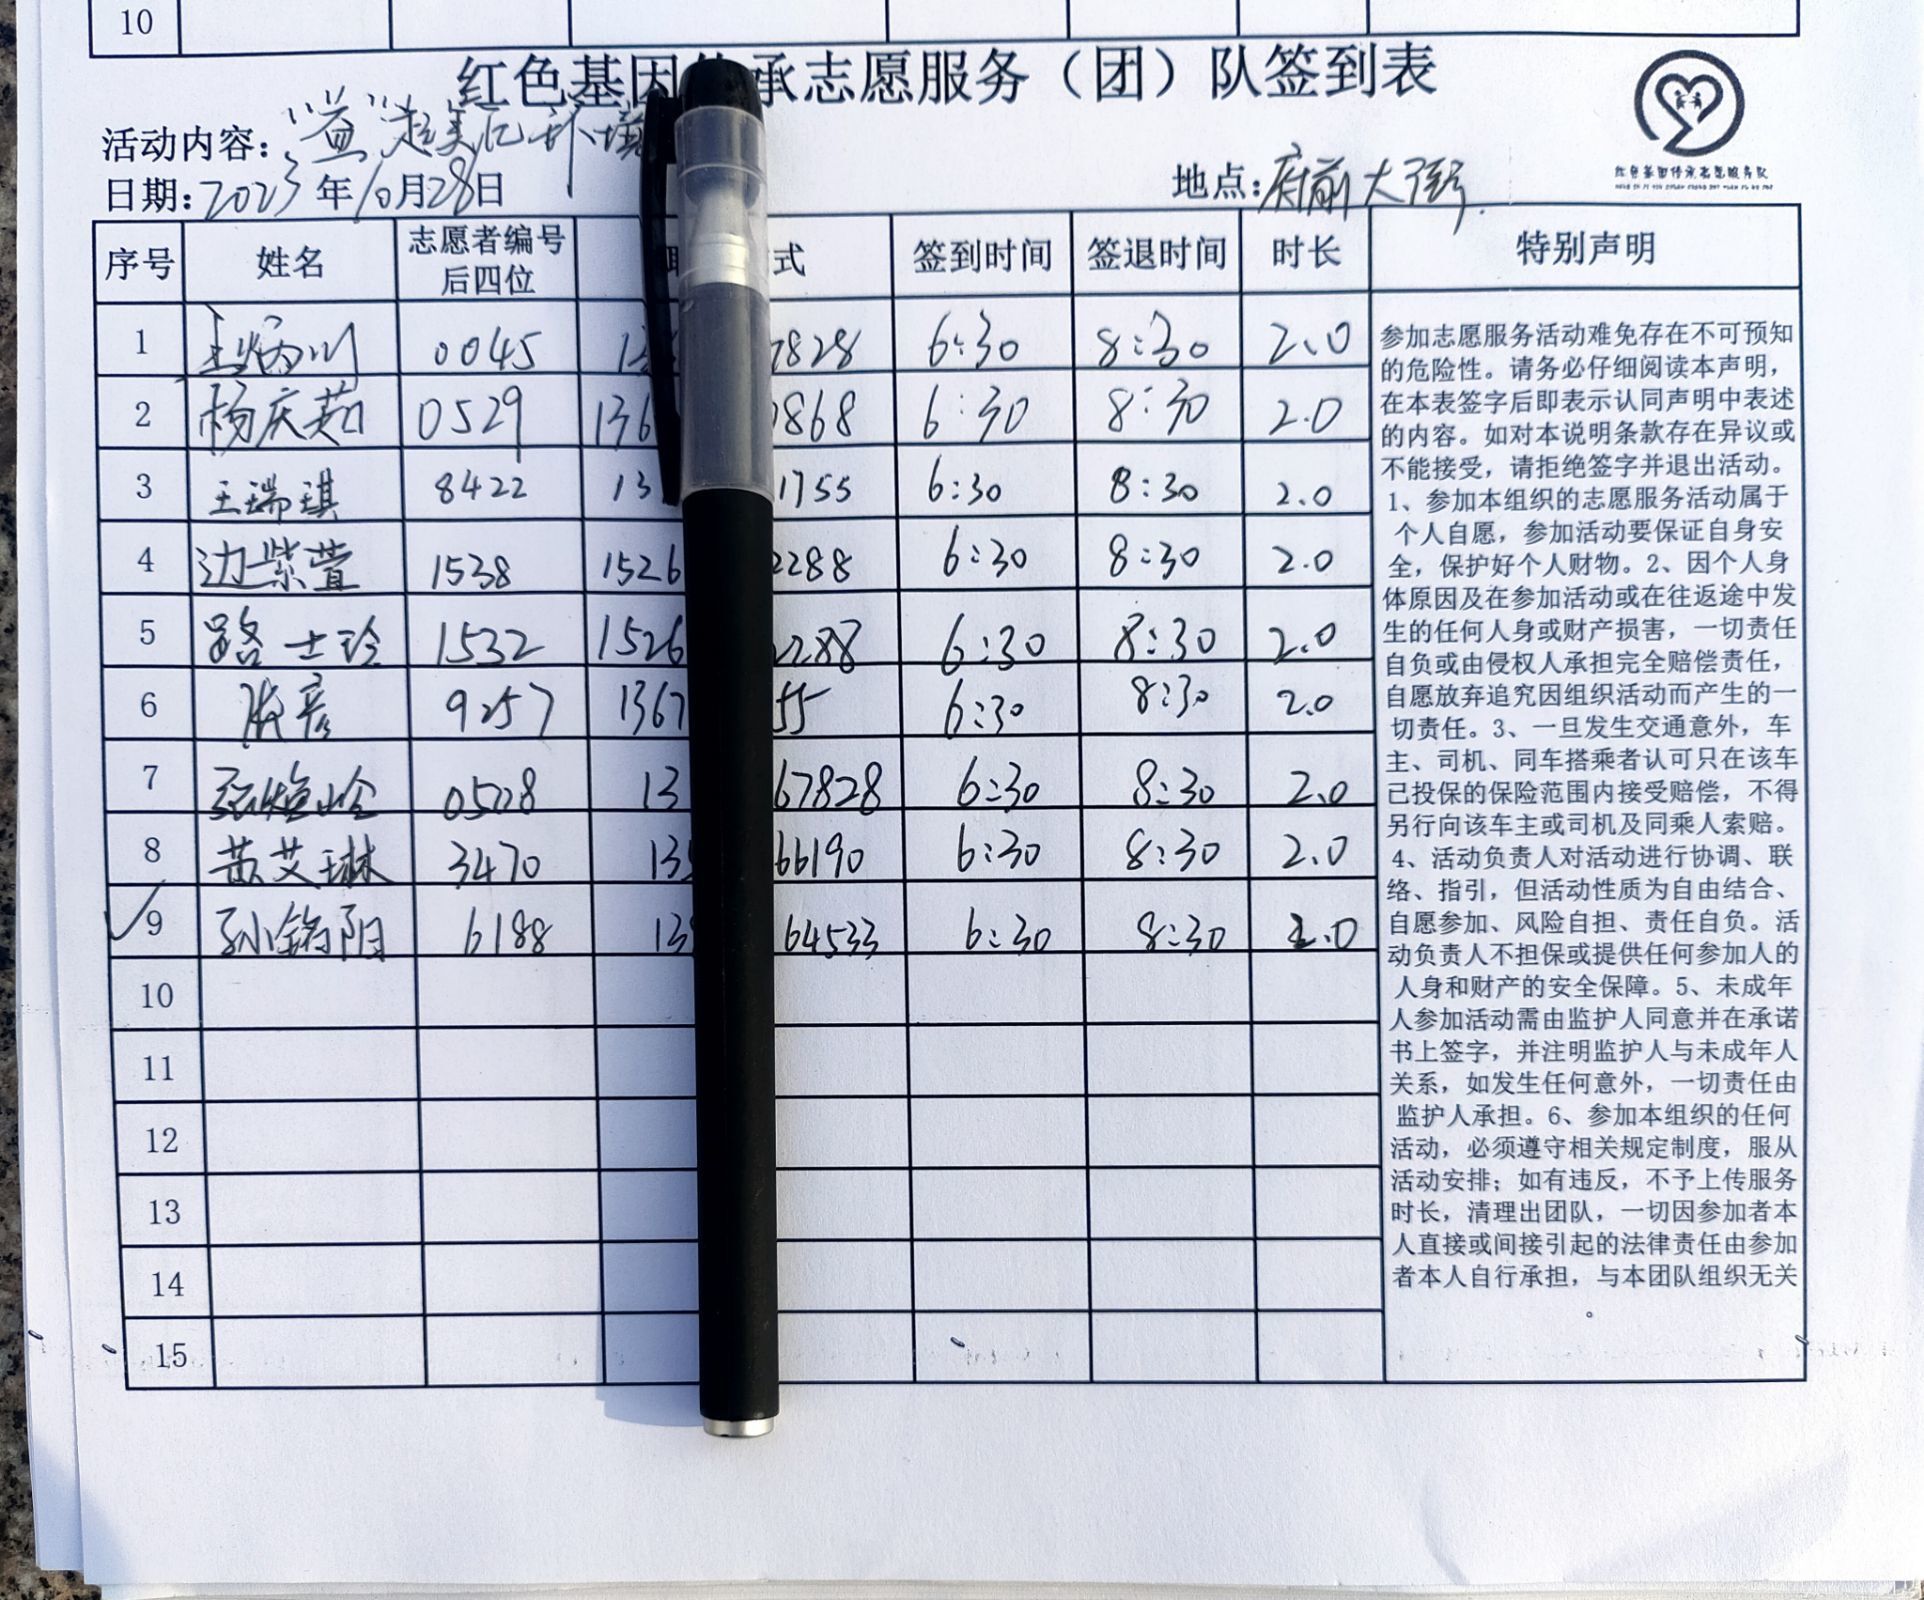 10
红色基因 承志愿服务（团）队签到表
活动内容："益"起美化环境
日期：2023年10月28日 地点：府前大街
红色基因传承志愿服务队
序号 姓名 志愿者编号后四位 式 签到时间 签退时间 时长 特别声明
1 王炳川 0045 7828 6:30 8:30 2.0
2 杨庆茹 0529 136 868 6:30 8:30 2.0
3 王瑞琪 8422 13 1755 6:30 8:30 2.0
4 边紫萱 1538 1526 2288 6:30 8:30 2.0
5 路士玲 1532 1526 2288 6:30 8:30 2.0
6 张彦 9257 1367 55 6:30 8:30 2.0
7 0528 13 67828 6:30 8:30 2.0
8 黄艾琳 3470 13 66190 6:30 8:30 2.0
9 孙铭阳 6188 13 64533 6:30 8:30 2.0
10
11
12
13
14
15
参加志愿服务活动难免存在不可预知
的危险性。请务必仔细阅读本声明，
在本表签字后即表示认同声明中表述
的内容。如对本说明条款存在异议或
不能接受，请拒绝签字并退出活动。
1、参加本组织的志愿服务活动属于
个人自愿，参加活动要保证自身安
全，保护好个人财物。2、因个人身
体原因及在参加活动或在往返途中发
生的任何人身或财产损害，一切责任
自负或由侵权人承担完全赔偿责任，
自愿放弃追究因组织活动而产生的一
切责任。3、一旦发生交通意外，车
主、司机、同车搭乘者认可只在该车
已投保的保险范围内接受赔偿，不得
另行向该车主或司机及同乘人索赔。
4、活动负责人对活动进行协调、联
络、指引，但活动性质为自由结合、
自愿参加、风险自担、责任自负。活
动负责人不担保或提供任何参加人的
人身和财产的安全保障。5、未成年
人参加活动需由监护人同意并在承诺
书上签字，并注明监护人与未成年人
关系，如发生任何意外，一切责任由
监护人承担。6、参加本组织的任何
活动，必须遵守相关规定制度，服从
活动安排；如有违反，不予上传服务
时长，清理出团队，一切因参加者本
人直接或间接引起的法律责任由参加
者本人自行承担，与本团队组织无关
。